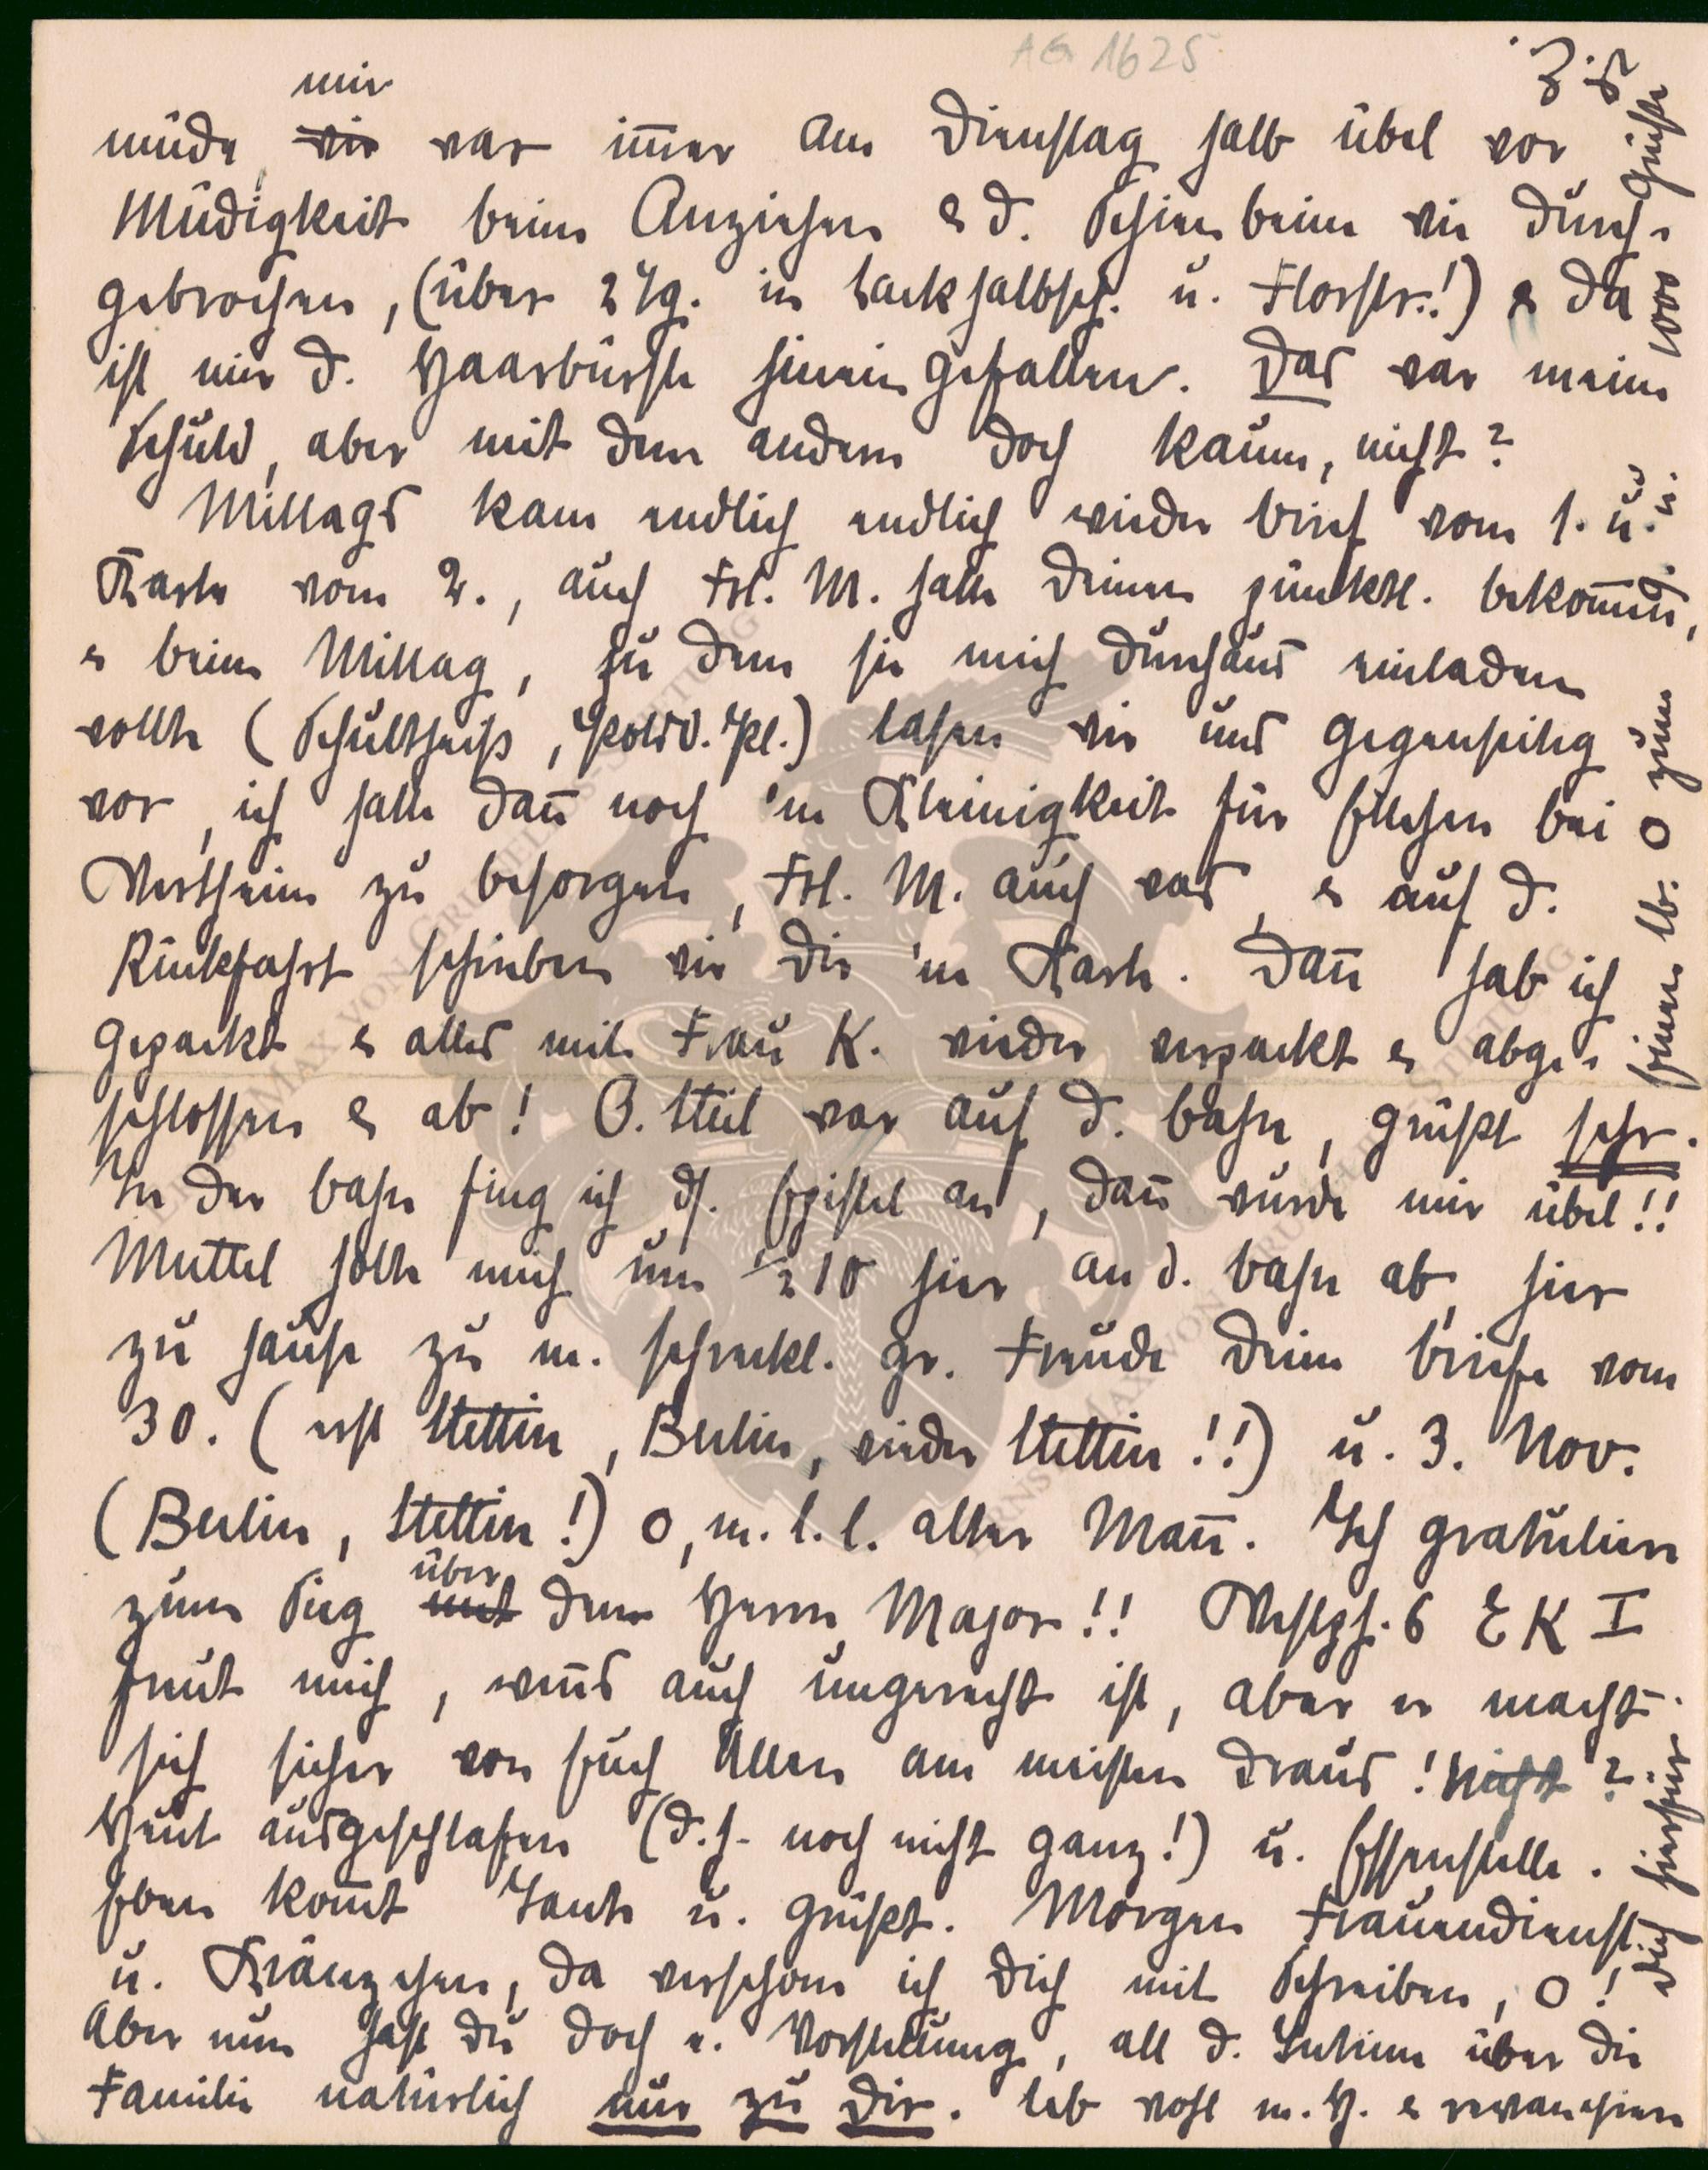 AG 1625
mir
müde, wir war im̄er am Dienstag halb übel vor
Müdigkeit beim Anziehen & d. Schienbeine wie durch-
gebrochen, (über 2 Tg. in Lackhalbsch. u. Florstr.!) & da
ist mir d. Haarbürste hineingefallen. Das war meine
Schuld, aber mit dem andern doch kaum, nicht?
Mittags kam endlich endlich wieder Brief vom 1. u.
Karte vom 2., auch Frl. M. hatte Deinen pünktl. bekom̄en,
& beim Mittag, zu dem sie mich durchaus einladen
wollte (Schultheiß, Potsd. Pl.) lasen wir uns gegenseitig
vor, ich hatte dan̄ noch 'ne Kleinigkeit für Ellchen bei
Wertheim zu besorgen, Frl. M. auch was, & auf d.
Rückfahrt schrieben wir Dir 'ne Karte. Dan̄ hab ich
gepackt & alles mit Frau K. wieder verpackt & abge-
schlossen & ab! O. Stiel war auf d. Bahn, grüßt sehr.
In der Bahn fing ich ds. Epistel an, dan̄ wurde mir übel!!
Muttel holte mich um ½10 hier an d. Bahn ab, hier
zu Hause zu m. schreckl. gr. Freude Deine Briefe vom
30. (erst Stettin, Berlin, wieder Stettin!!) u. 3. Nov.
(Berlin, Stettin!) O, m. l. l. alter Man̄. Ich gratuliere
über
zum Sieg mit dem Herrn Major!! Westph. 6 EK I
freut mich, wen̄s auch ungerecht ist, aber er macht
sich sicher von Euch Allen am meisten draus! Nicht?
Heut ausgeschlafen (d. h. noch nicht ganz!) u. Essenstelle.
Eben kom̄t Tante u. grüßt. Morgen Frauendienst
u. Kränzchen, da verschone ich Dich mit Schreiben, O!
Aber nun hast Du doch e. Vorstellung, all d. Intime über die
Familie natürlich nur zu Dir. Leb wohl m. H. & revanchiere
Dich hierfür
einen lb. O zum
1000 Grüße